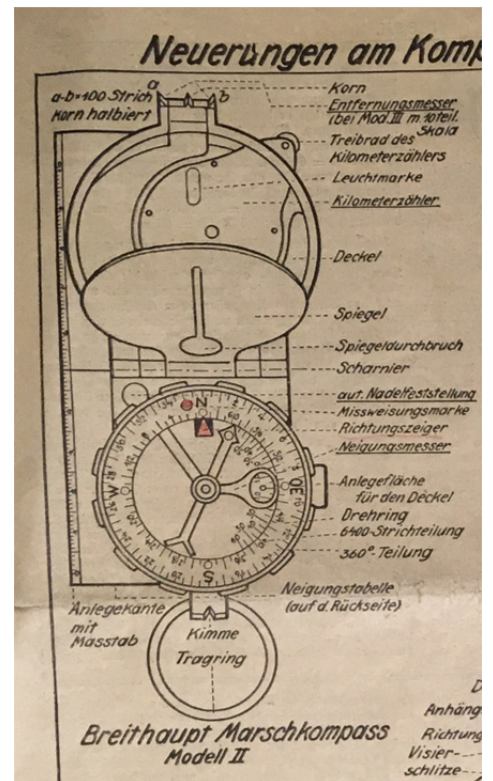 Neuerungen am Komp
a-b=100 Strich
Korn halbiert
a
b
Korn
Entfernungsmesser
(bei Mod. III m. 10teil.
Skala
Treibrad des
Kilometerzählers
Leuchtmarke
Kilometerzähler
Deckel
Spiegel
Spiegeldurchbruch
Scharnier
aut. Nadelfeststellung
Missweisungsmarke
Richtungszeiger
Neigungsmesser
Anlegefläche
für den Deckel
Drehring
6400-Strichteilung
360°-Teilung
N
W
OE
S
Neigungstabelle
(auf d. Rückseite)
Anlegekante
mit
Masstab
Kimme
Tragring
Breithaupt Marschkompass
Modell II
D
Anhäng
Richtung
Visier-
schlitze